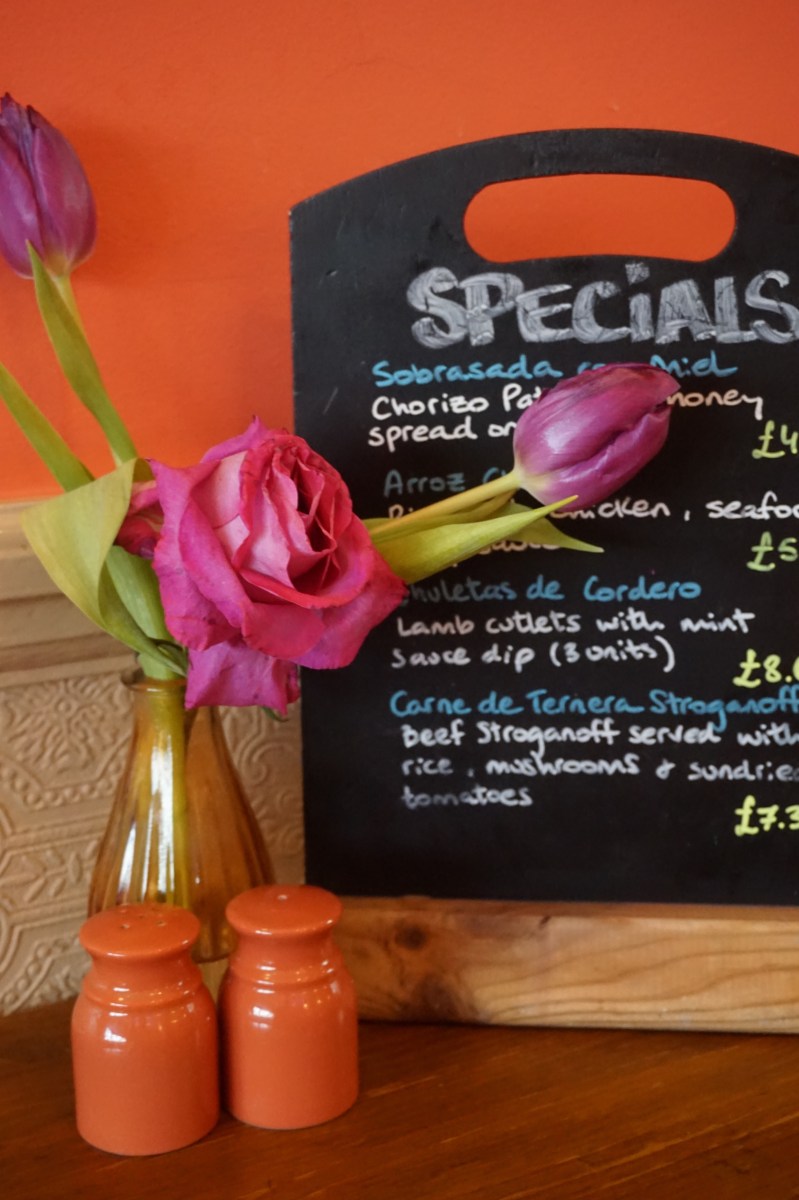 SPECIALS
Sobrasada Miel
Chorizo honey
spread
£4
Arroz
chicken, seafoo
£5
Chuletas de Cordero
Lamb cutlets with mint
sauce dip (3 units)
£8.
Carne de Ternera Stroganoff
Beef Stroganoff served with
rice, mushrooms & sundried
tomatoes
£7.3